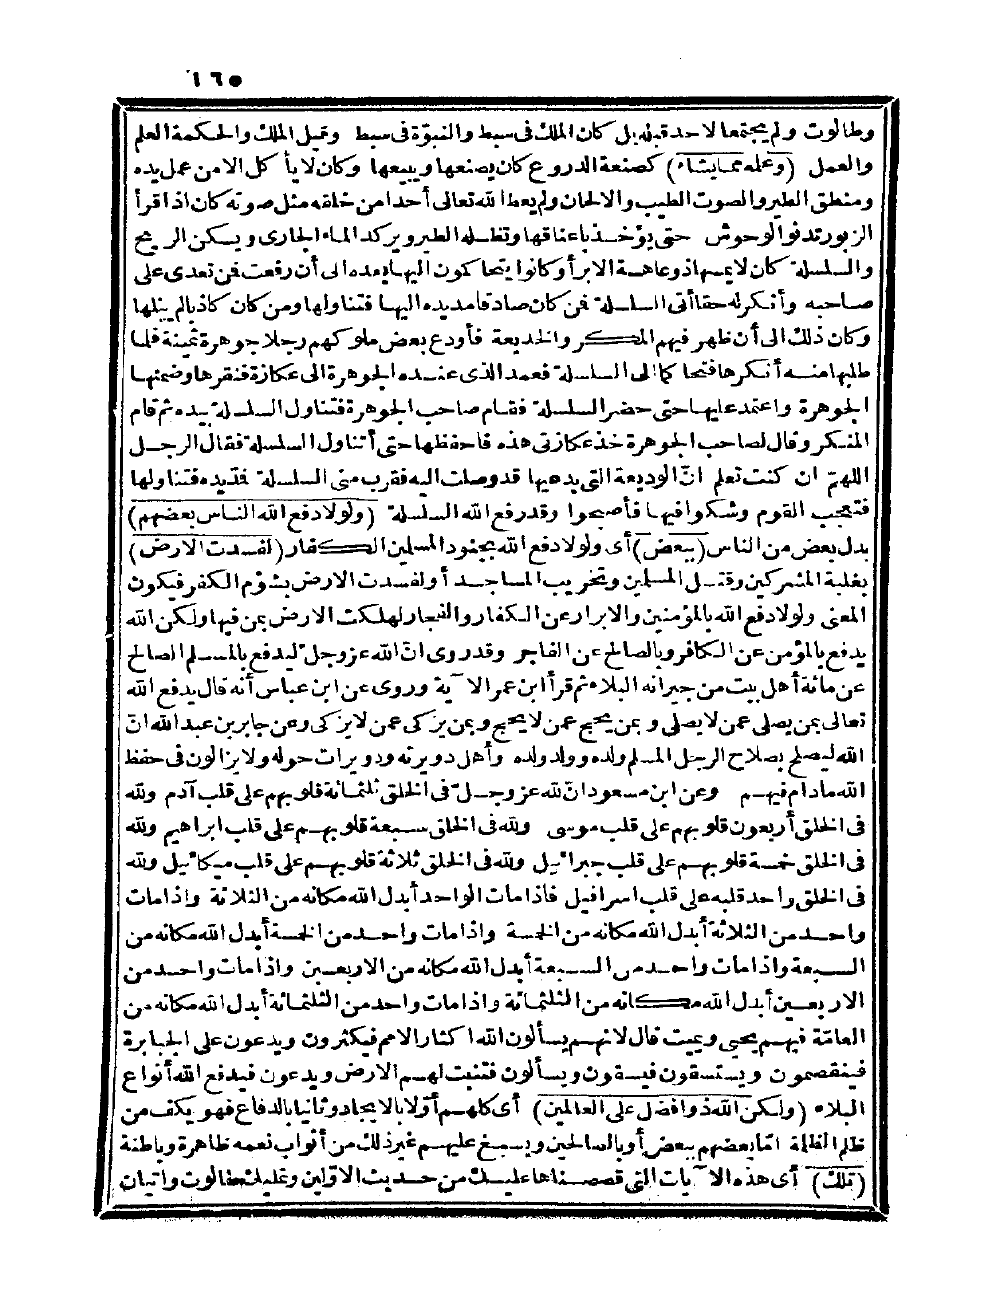 ١٦٥
وطالوت ولم يجتمعا لاحد قبله بل كان الملك فى سبط والنبوّة فى سبط وقيل الملك والحكمة العلم
والعمل (وعلمه مما يشاء) كصنعة الدروع كان يصنعها ويبيعها وكان لا يأكل الا من عمل يده
ومنطق الطير والصوت الطيب والالحان ولم يعط الله تعالى أحدا من خلقه مثل صوته كان اذا قرأ
الزبور تدنو الوحوش حتى يؤخذ بأعناقها وتظله الطير ويركد الماء الجارى ويسكن الريح
والسلسلة كان لا يمسها ذو عاهة الا برأ وكانوا يتحاكمون اليها بعده الى أن رفعت فمن تعدى على
صاحبه وأنكر له حقا أتى السلسلة فمن كان صادقا مد يده اليها فتناولها ومن كان كاذبا لم ينلها
وكان ذلك الى أن ظهر فيهم المكر والخديعة فأودع بعض ملوكهم رجلا جوهرة ثمينة فلما
طلبها منه أنكرها فتحاكما الى السلسلة فعمد الذى عنده الجوهرة الى عكازة فنقرها وضمنها
الجوهرة واعتمد عليها حتى حضر السلسلة فقام صاحب الجوهرة فتناول السلسلة بيده ثم قام
المنكر وقال لصاحب الجوهرة خذ عكازتى هذه فاحفظها حتى أتناول السلسلة فقال الرجل
اللهمّ ان كنت تعلم انّ الوديعة التى يدعيها قد وصلت اليه فقرب منى السلسلة فمدّ يده فتناولها
فتعجب القوم وشكوا فيها فأصبحوا وقد رفع الله السلسلة (ولولا دفع الله الناس بعضهم)
بدل بعض من الناس (ببعض) أى ولولا دفع الله بجنود المسلمين الكفار (لفسدت الارض)
بغلبة المشركين وقتل المسلمين وتخريب المساجد أو لفسدت الارض بشؤم الكفر فيكون
المعنى ولولا دفع الله بالمؤمنين والابرار عن الكفار والفجار لهلكت الارض بمن فيها ولكن الله
يدفع بالمؤمن عن الكافر وبالصالح عن الفاجر وقد روى انّ الله عز وجل ليدفع بالمسلم الصالح
عن مائة أهل بيت من جيرانه البلاء ثم قرأ ابن عمر الآية وروى عن ابن عباس أنه قال يدفع الله
تعالى بمن يصلى عمن لا يصلى وبمن يحج عمن لا يحج وبمن يزكى عمن لا يزكى وعن جابر بن عبد الله انّ
الله ليصلح بصلاح الرجل المسلم ولده وولد ولده وأهل دويرته ودويرات حوله ولا يزالون فى حفظ
الله مادام فيهم وعن ابن مسعود انّ لله عز وجل فى الخلق ثلثمائة قلوبهم على قلب آدم ولله
فى الخلق أربعون قلوبهم على قلب موسى ولله فى الخلق سبعة قلوبهم على قلب ابراهيم ولله
فى الخلق خمسة قلوبهم على قلب جبرائيل ولله فى الخلق ثلاثة قلوبهم على قلب ميكائيل ولله
فى الخلق واحد قلبه على قلب اسرافيل فاذا مات الواحد أبدل الله مكانه من الثلاثة واذا مات
واحد من الثلاثة أبدل الله مكانه من الخمسة واذا مات واحد من الخمسة أبدل الله مكانه من
السبعة واذا مات واحد من السبعة أبدل الله مكانه من الاربعين واذا مات واحد من
الاربعين أبدل الله مكانه من الثلثمائة واذا مات واحد من الثلثمائة أبدل الله مكانه من
العامّة فبهم يحيى ويميت قال لانهم يسألون الله اكثار الامم فيكثرون ويدعون على الجبابرة
فينقصمون ويستسقون فيسقون ويسألون فتنبت لهم الارض ويدعون فيدفع الله أنواع
البلاء (ولكن الله ذو افضل على العالمين) أى كلهم أوّلا بالايجاد وثانيا بالدفاع فهو يكف من
ظلم الظلمة امّا بعضهم ببعض أو بالصالحين ويسبغ عليهم غير ذلك من أثواب نعمه ظاهرة وباطنة
(تلك) أى هذه الآيات التى قصصناها عليك من حديث الاوّلين وتمليك طالوت واتيان